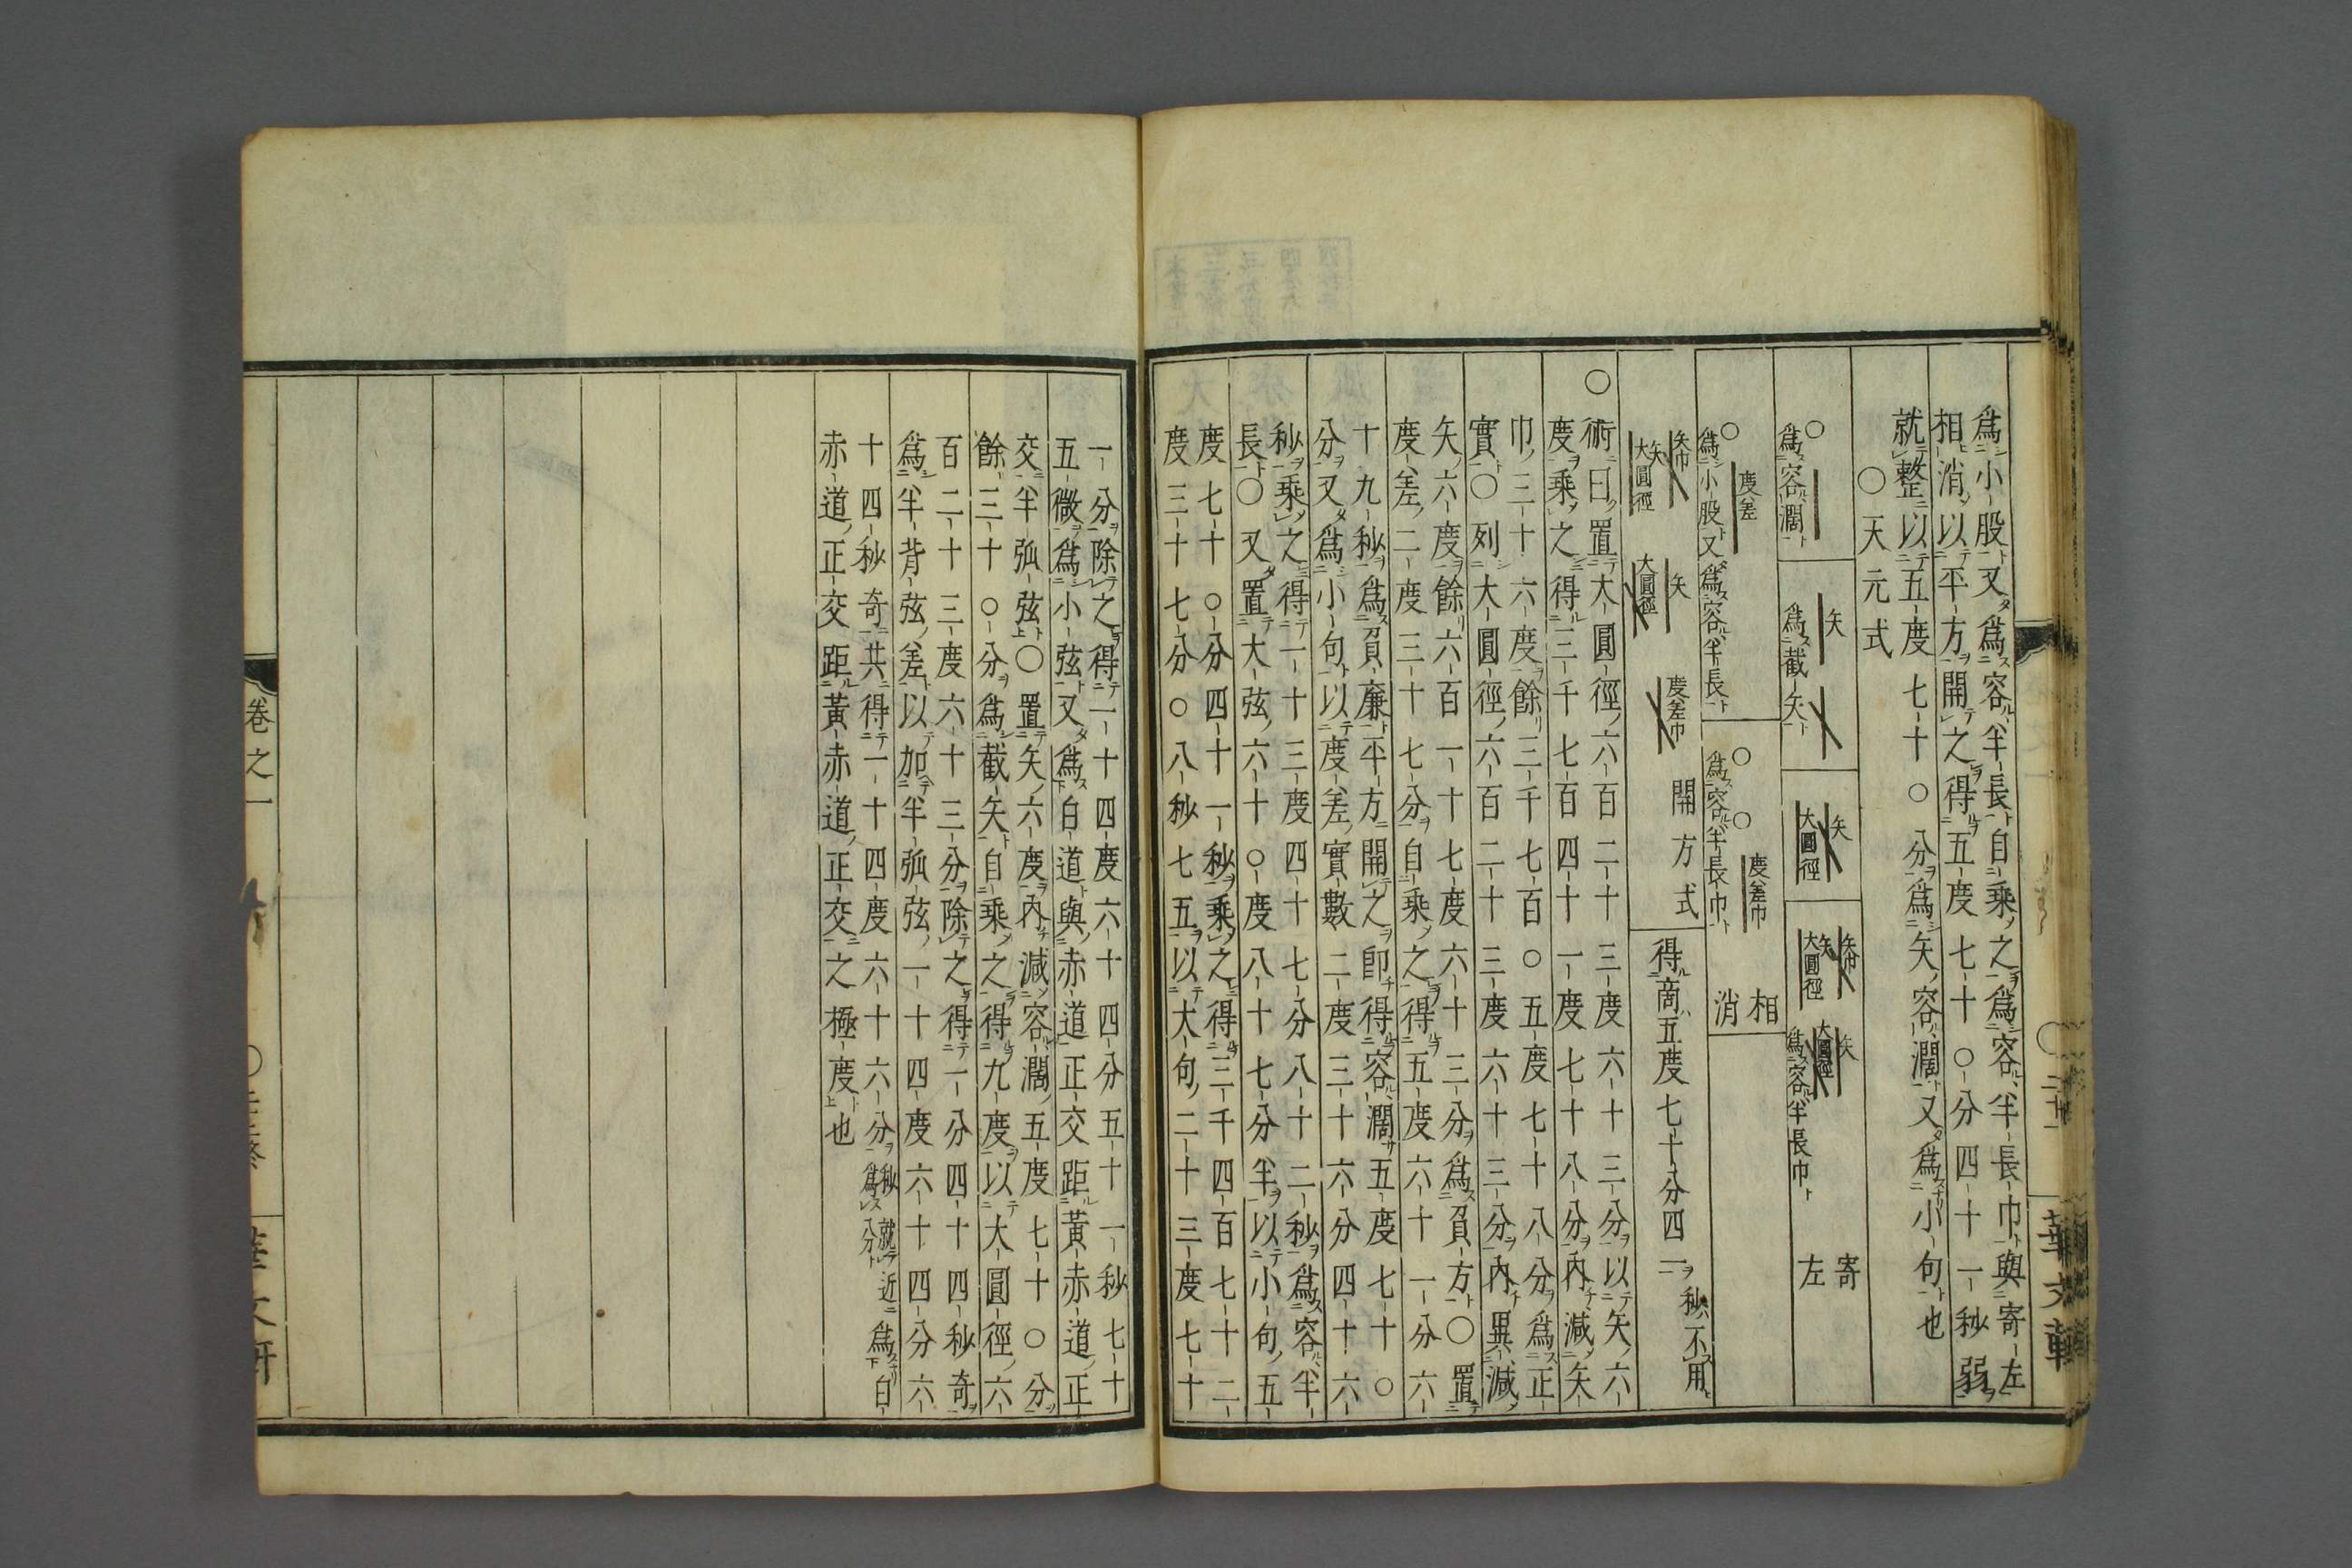 為小股又為容半長自乘之為容半長巾與寄左
相消以平方開之得五度七十〇分四十一秒弱
就整以五度七十〇分為矢容濶又為小句也
〇天元式
〇
為容濶
矢
為截矢
矢
大圓徑
矢巾
矢
大圓徑
矢
大圓徑
為容半長巾
寄左
〇
度差
為小股又為容半長
〇
〇
度差巾
為容半長巾
相消
矢巾
矢
大圓徑
矢
大圓徑
度差巾
開方式
得商五度七十分四一秒不用
〇術曰置大圓徑六百二十三度六十三分以矢六
度乘之得三千七百四十一度七十八分內減矢
巾三十六度餘三千七百〇五度七十八分為正
實〇列大圓徑六百二十三度六十三分內異減
矢六度餘六百一十七度六十三分為負方〇置
度差二度三十七分自乘之得五度六十一分六
十九秒為負廉平方開之即得容濶五度七十〇
分又為小句以度差實數二度三十六分四十六
秒乘之得一十三度四十七分八十二秒為容半
長〇又置大弦六十〇度八十七分半以小句五
度七十〇分四十一秒乘之得三千四百七十二
度三十七分〇八秒七五以大句二十三度七十
一分除之得一十四度六十四分五十一秒七十
五微為小弦又為白道與赤道正交距黃赤道正
交半弧弦〇置矢六度內減容濶五度七十〇分
餘三十〇分為截矢自乘之得九度以大圓徑六
百二十三度六十三分除之得一分四十四秒奇
為半背弦差以加半弧弦一十四度六十四分六
十四秒奇共得一十四度六十六分秒就近為八分為白
赤道正交距黃赤道正交之極度也
卷之一